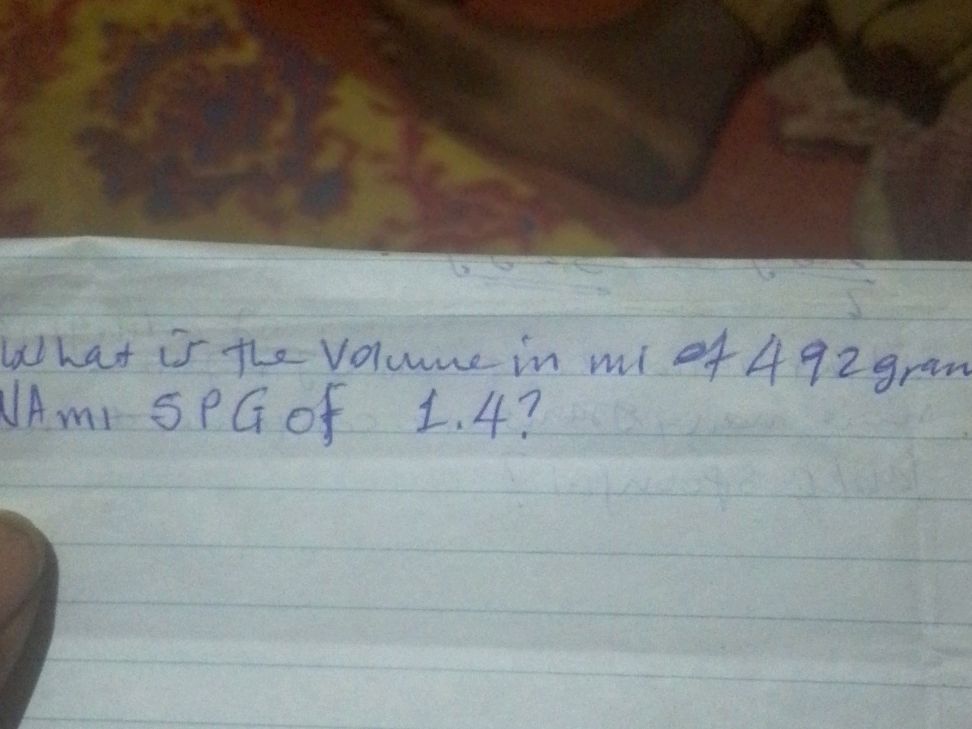 What is the Volume in ml of 492 gram
SPG of 1.4?